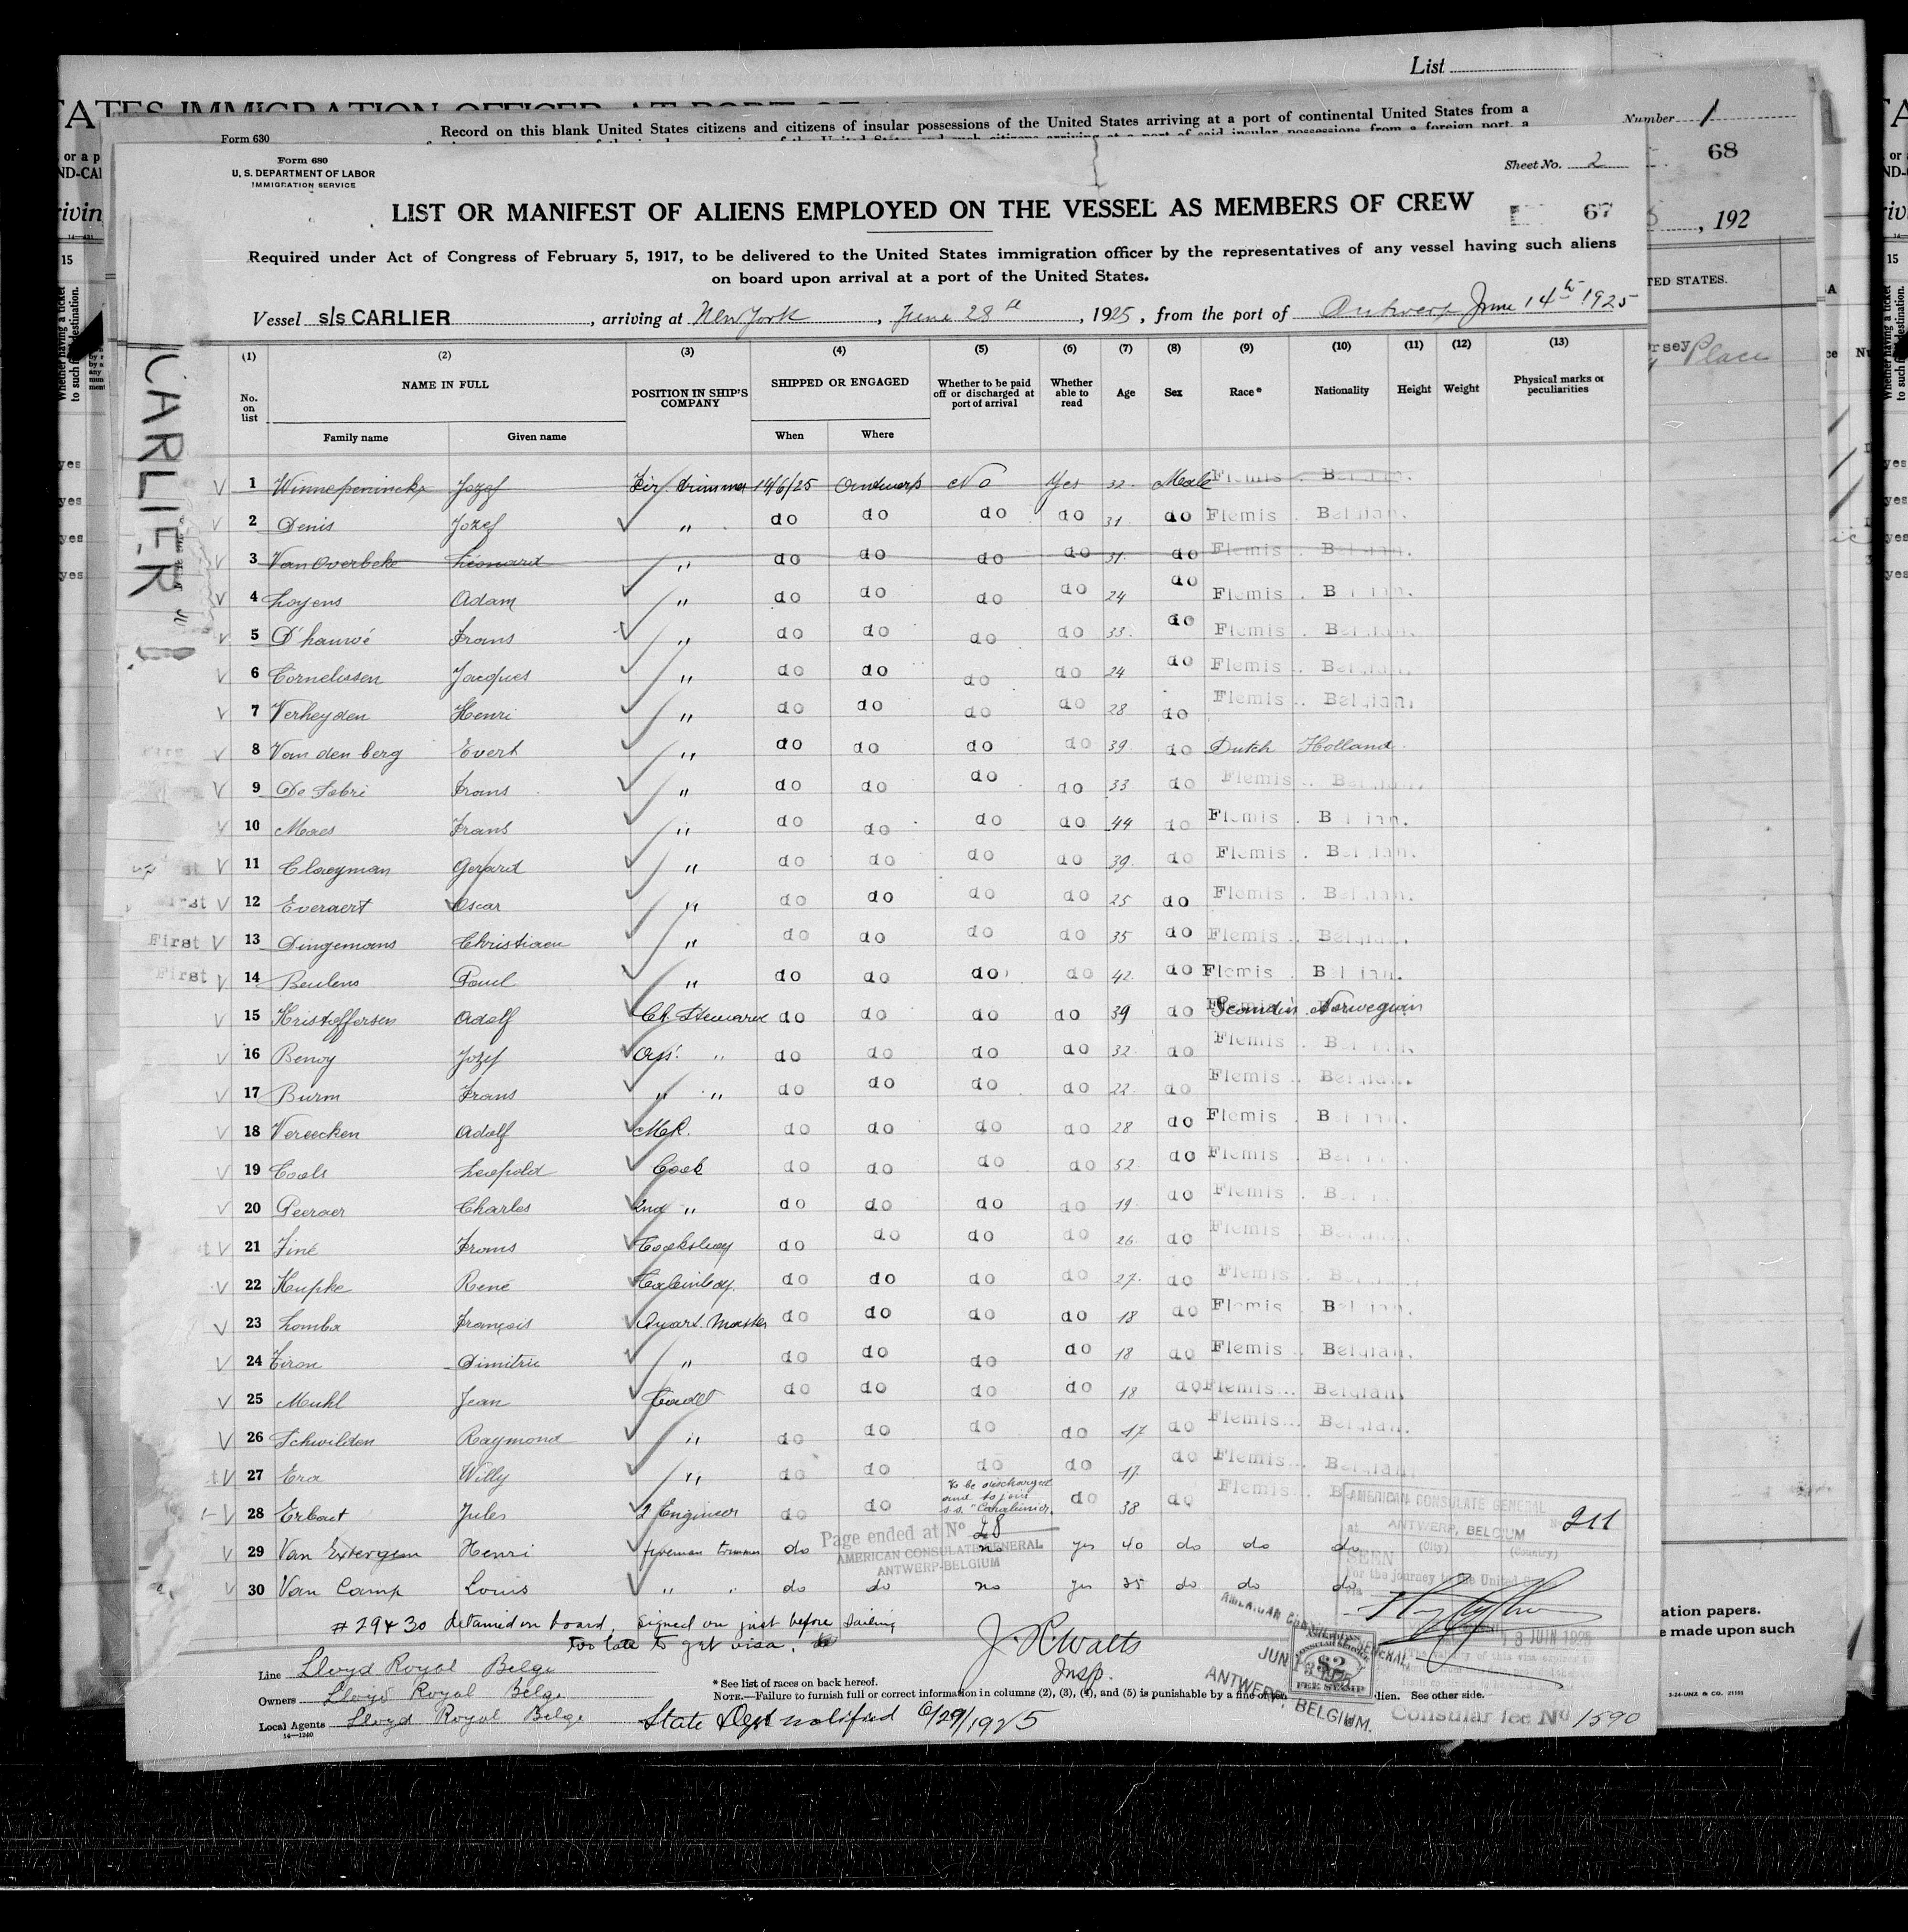 List
Number 1
Form 630
Record on this blank United States citizens and citizens of insular possessions of the United States arriving at a port of continental United States from a
68
, 192
TED STATES.
Place
Form 680
U. S. DEPARTMENT OF LABOR
IMMIGRATION SERVICE
Sheet No. 2
LIST OR MANIFEST OF ALIENS EMPLOYED ON THE VESSEL AS MEMBERS OF CREW
67
Required under Act of Congress of February 5, 1917, to be delivered to the United States immigration officer by the representatives of any vessel having such aliens
on board upon arrival at a port of the United States.
Vessel s/s CARLIER , arriving at New York , June 28th , 1925 , from the port of Antwerp June 14th 1925
CARLIER
(1) (2) (3) (4) (5) (6) (7) (8) (9) (10) (11) (12) (13)
No. on list NAME IN FULL Family name Given name POSITION IN SHIP'S COMPANY SHIPPED OR ENGAGED When Where Whether to be paid off or discharged at port of arrival Whether able to read Age Sex Race* Nationality Height Weight Physical marks or peculiarities
1 Winnepeninckx Jozef Fir. trimmer 14/6/25 Antwerp No Yes 32 Male Flemis. Belgian.
2 Denis Jozef " do do do do 31 do Flemis. Belgian.
3 Van Overbeke Léonard " do do do do 31 do Flemis. Belgian.
4 Loyens Adam " do do do do 24 do Flemis. Belgian.
5 D'hauwé Frans " do do do do 33 do Flemis. Belgian.
6 Cornelissen Jacques " do do do do 24 do Flemis. Belgian.
7 Verheyden Henri " do do do do 28 do Flemis. Belgian.
8 Van den berg Evert " do do do do 39 do Dutch Holland
9 De Sabri Frans " do do do do 33 do Flemis. Belgian.
10 Maes Frans " do do do do 44 do Flemis. Belgian.
11 Claeyman Gerard " do do do do 39 do Flemis. Belgian.
First 12 Everaert Oscar " do do do do 25 do Flemis. Belgian.
First 13 Dingemans Christiaen " do do do do 35 do Flemis. Belgian.
First 14 Beulens Paul " do do do do 42 do Flemis. Belgian.
15 Kristoffersen Adolf Ch. Steward do do do do 39 do Scandin Norwegian
16 Benoy Jozef Ass. " do do do do 32 do Flemis. Belgian.
17 Burm Frans " " do do do do 22 do Flemis. Belgian.
18 Vereecken Adolf do do do do 28 do Flemis. Belgian.
19 Cools Leopold Cook do do do do 52 do Flemis. Belgian.
20 Peeraer Charles 2nd " do do do do 19 do Flemis. Belgian.
21 Finé Frans Cooksboy do do do do 26 do Flemis. Belgian.
22 Keupke René Cabinboy do do do do 27 do Flemis. Belgian.
23 Lomba François Quart. Master do do do do 18 do Flemis. Belgian.
24 Tiron Dimitrie " do do do do 18 do Flemis. Belgian.
25 Muhl Jean Cadet do do do do 18 do Flemis. Belgian.
26 Schwilden Raymond " do do do do 17 do Flemis. Belgian.
27 Era Willy " do do do do 17 do Flemis. Belgian.
28 Erbout Jules 2 Engineer do do to be discharged and to join s.s. do 38 do Flemis. B
29 Van Extergem Henri fireman trimmer do no yes 40 do do do
30 Van Camp Louis " " do do no yes 35 do do do
Page ended at No 28
AMERICAN CONSULATE GENERAL
ANTWERP-BELGIUM
AMERICAN CONSULATE GENERAL
at ANTWERP, BELGIUM No 211
(City) (Country)
SEEN
For the journey to the United S
via
18 JUIN 1925
# 29 & 30 detained on board, signed on just before sailing
too late to get visa.
J. R. Watts
Insp.
Line Lloyd Royal Belge
Owners Lloyd Royal Belge
Local Agents Lloyd Royal Belge
14—1240
* See list of races on back hereof.
NOTE.—Failure to furnish full or correct information in columns (2), (3), (4), and (5) is punishable by a fine of ten lien. See other side.
State Dept notified 6/29/1925
AMERICAN CONSULATE GENERAL
JUN
ANTWERP, BELGIUM.
$2
FEE STAMP
Consular fee No 1590
ation papers.
e made upon such